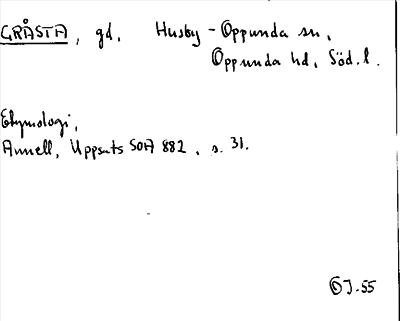 GRÅSTA, gd. Husby-Oppunda sn,
Oppunda hd, Söd.l.
Etymologi,
Annell, Uppsats SOA 882, s. 31.
J.55